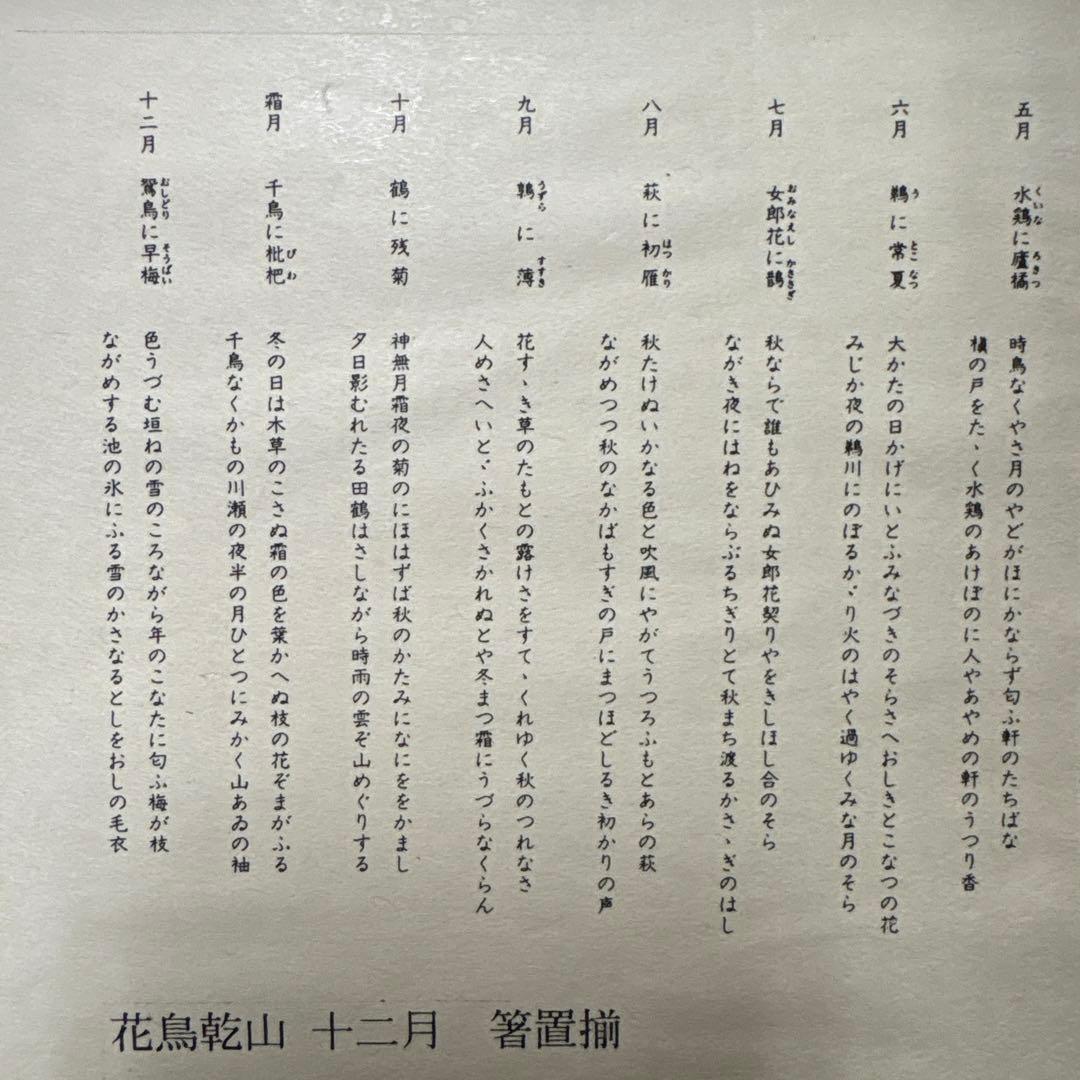 五月　水鶏に廬橘
くいな　ろきつ
時鳥なくやさ月のやどがほにかならず匂ふ軒のたちばな
槇の戸をたゝく水鶏のあけぼのに人やあやめの軒のうつり香
六月　鵜に常夏
う　とこなつ
大かたの日かげにいとふみなづきのそらさへおしきとこなつの花
みじか夜の鵜川にのぼるかゞり火のはやく過ゆくみな月のそら
七月　女郎花に鵲
おみなえし　かささぎ
秋ならで誰もあひみぬ女郎花契りやをきしほし合のそら
ながき夜にはねをならぶるちぎりとて秋まち渡るかさゝぎのはし
八月　萩に初雁
はつかり
秋たけぬいかなる色と吹風にやがてうつろふもとあらの萩
ながめつつ秋のなかばもすぎの戸にまつほどしるき初かりの声
九月　鶉に薄
うずら　すすき
花すゝき草のたもとの露けさをすてゝくれゆく秋のつれなさ
人めさへいとゞふかくさかれぬとや冬まつ霜にうづらなくらん
十月　鶴に残菊
神無月霜夜の菊のにほはずば秋のかたみになにををかまし
夕日影むれたる田鶴はさしながら時雨の雲ぞ山めぐりする
霜月　千鳥に枇杷
びわ
冬の日は木草のこさぬ霜の色を葉かへぬ枝の花ぞまがふる
千鳥なくかもの川瀬の夜半の月ひとつにみかく山あゐの袖
十二月　鴛鳥に早梅
おしどり　そうばい
色うづむ垣ねの雪のころながら年のこなたに匂ふ梅が枝
ながめする池の氷にふる雪のかさなるとしをおしの毛衣
花鳥乾山　十二月　箸置揃